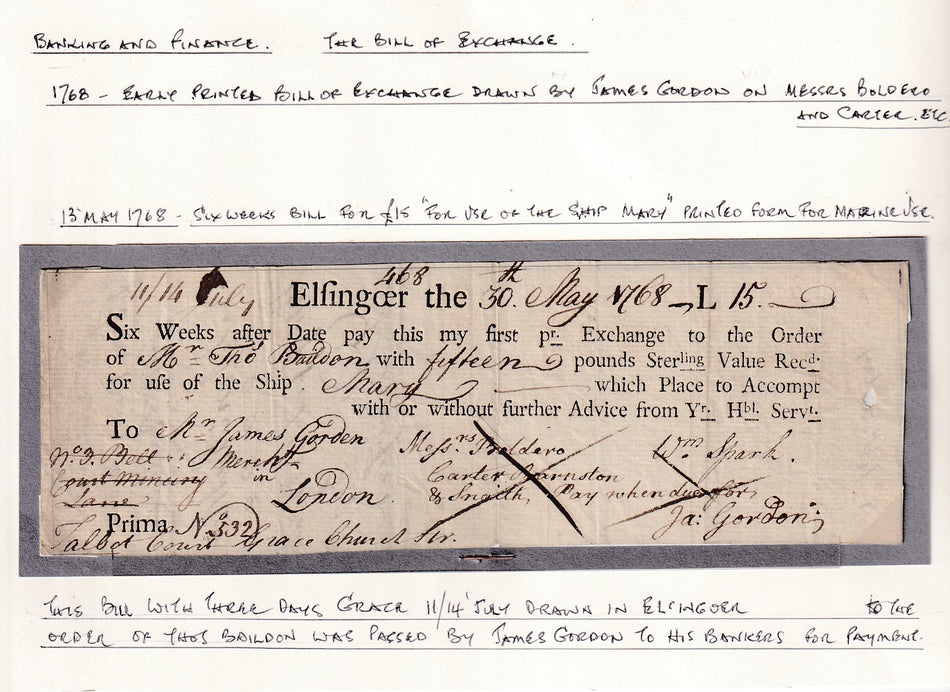 BANKING AND FINANCE. THE BILL OF EXCHANGE.
1768 - EARLY PRINTED BILL OF EXCHANGE DRAWN BY JAMES GORDON ON MESSRS BOLDERO
AND CARTER. ETC.
13 MAY 1768 - SIX WEEKS BILL FOR £15 "FOR USE OF THE SHIP MARY" PRINTED FORM FOR MARINE USE.
468
11/14 July Elſingœr the 30.th May 1768 L 15.
Six Weeks after Date pay this my first pr. Exchange to the Order
of Mr. Tho Baildon with fifteen pounds Sterling Value Recd.
for use of the Ship Mary which Place to Accompt
with or without further Advice from Yr. Hbl. Servt.
To Mr. James Gorden Messrs Boldero Wm. Spark.
No. 3. Bolt Mercht. Carter Barnston
Court Mincing in & Snaith, Pay when due for
Lane London. Ja: Gordon;
Prima No. 532
Talbot Court Grace Church Str.
THIS BILL WITH THREE DAYS GRACE 11/14 JULY DRAWN IN ELSINGOER TO THE
ORDER OF THOS BAILDON WAS PASSED BY JAMES GORDON TO HIS BANKERS FOR PAYMENT.